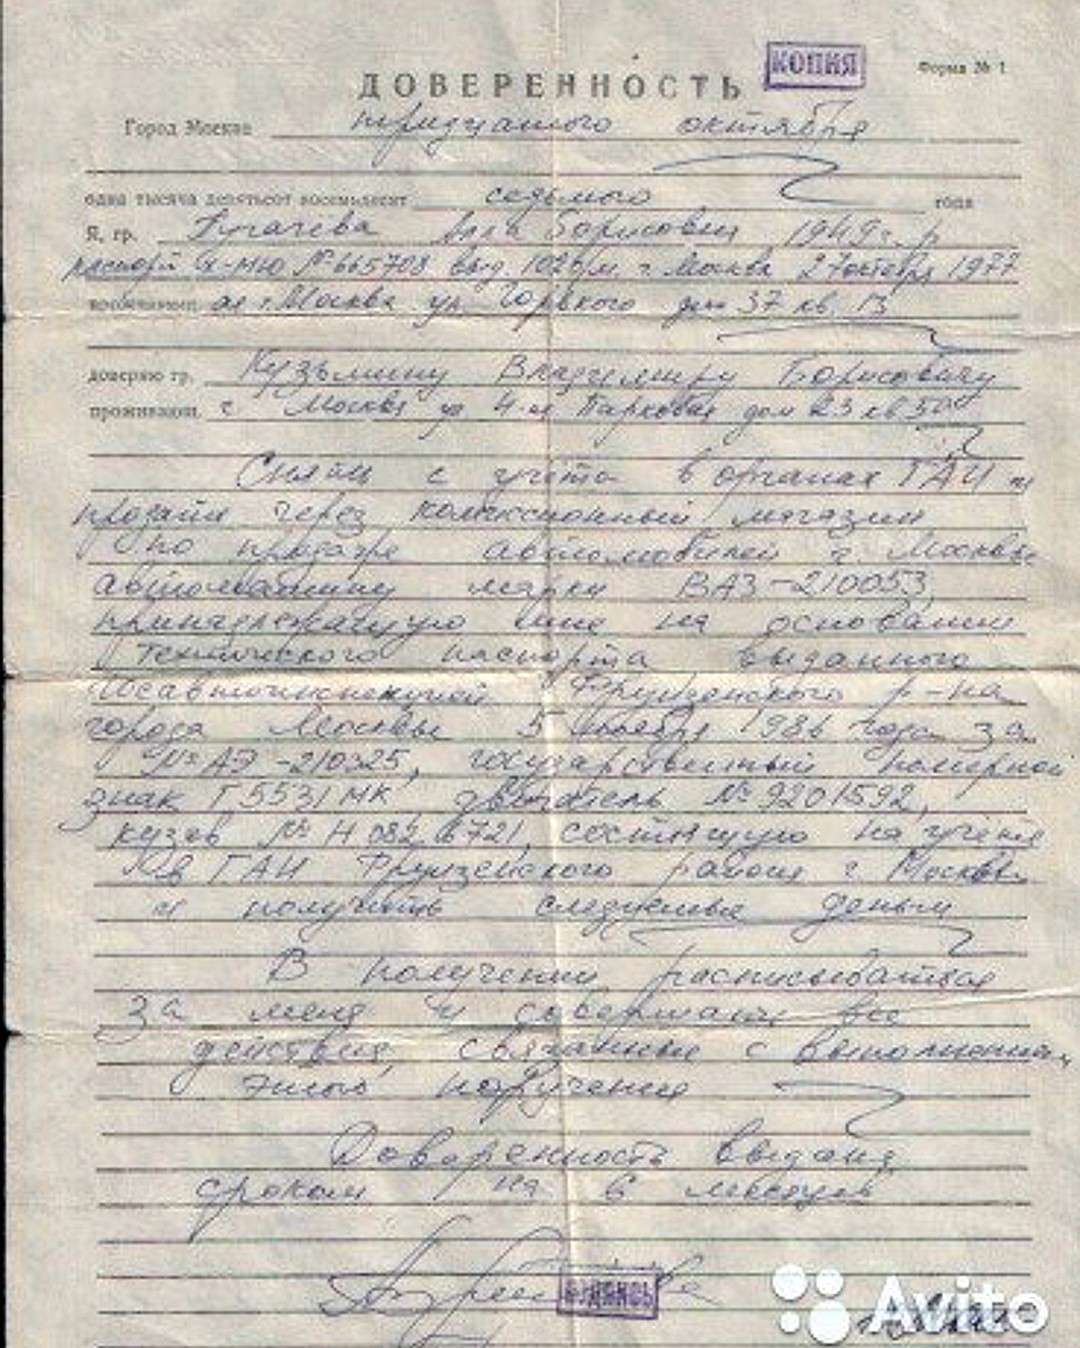 КОПИЯ
Форма № 1
ДОВЕРЕННОСТЬ
Город Москва тридцатого октября
одна тысяча девятьсот восемьдесят седьмого года
Я, гр. Пугачёва Алла Борисовна 1949 г. р
паспорт X-МЮ № 665708 выд. 102 о/м. г. Москва 27 октября 1977
г. Москва ул. Горького дом 37 кв. 13
доверяю гр. Кузьмину Владимиру Борисовичу
проживающ. г. Москва ул 4-я Парковая дом 23 кв 50
Снять с учёта в органах ГАИ и
продать через комиссионный магазин
по продаже автомобилей г. Москвы
автомашину марки ВАЗ-210053,
принадлежащую мне на основании
технического паспорта выданного
Госавтоинспекцией Фрунзенского р-на
города Москвы 5 ноября 1986 года за
№ АЭ-210325, государственный номерной
знак Г5531МК двигатель № 9201592,
кузов № Н 0826721, состоящую на учёте
в ГАИ Фрунзенского района г. Москвы
и получить следуемые деньги
В получении расписываться
за меня и совершать все
действия, связанные с выполнением
этого поручения
Доверенность выдана
сроком на 6 месяцев
ПОДПИСЬ
Avito